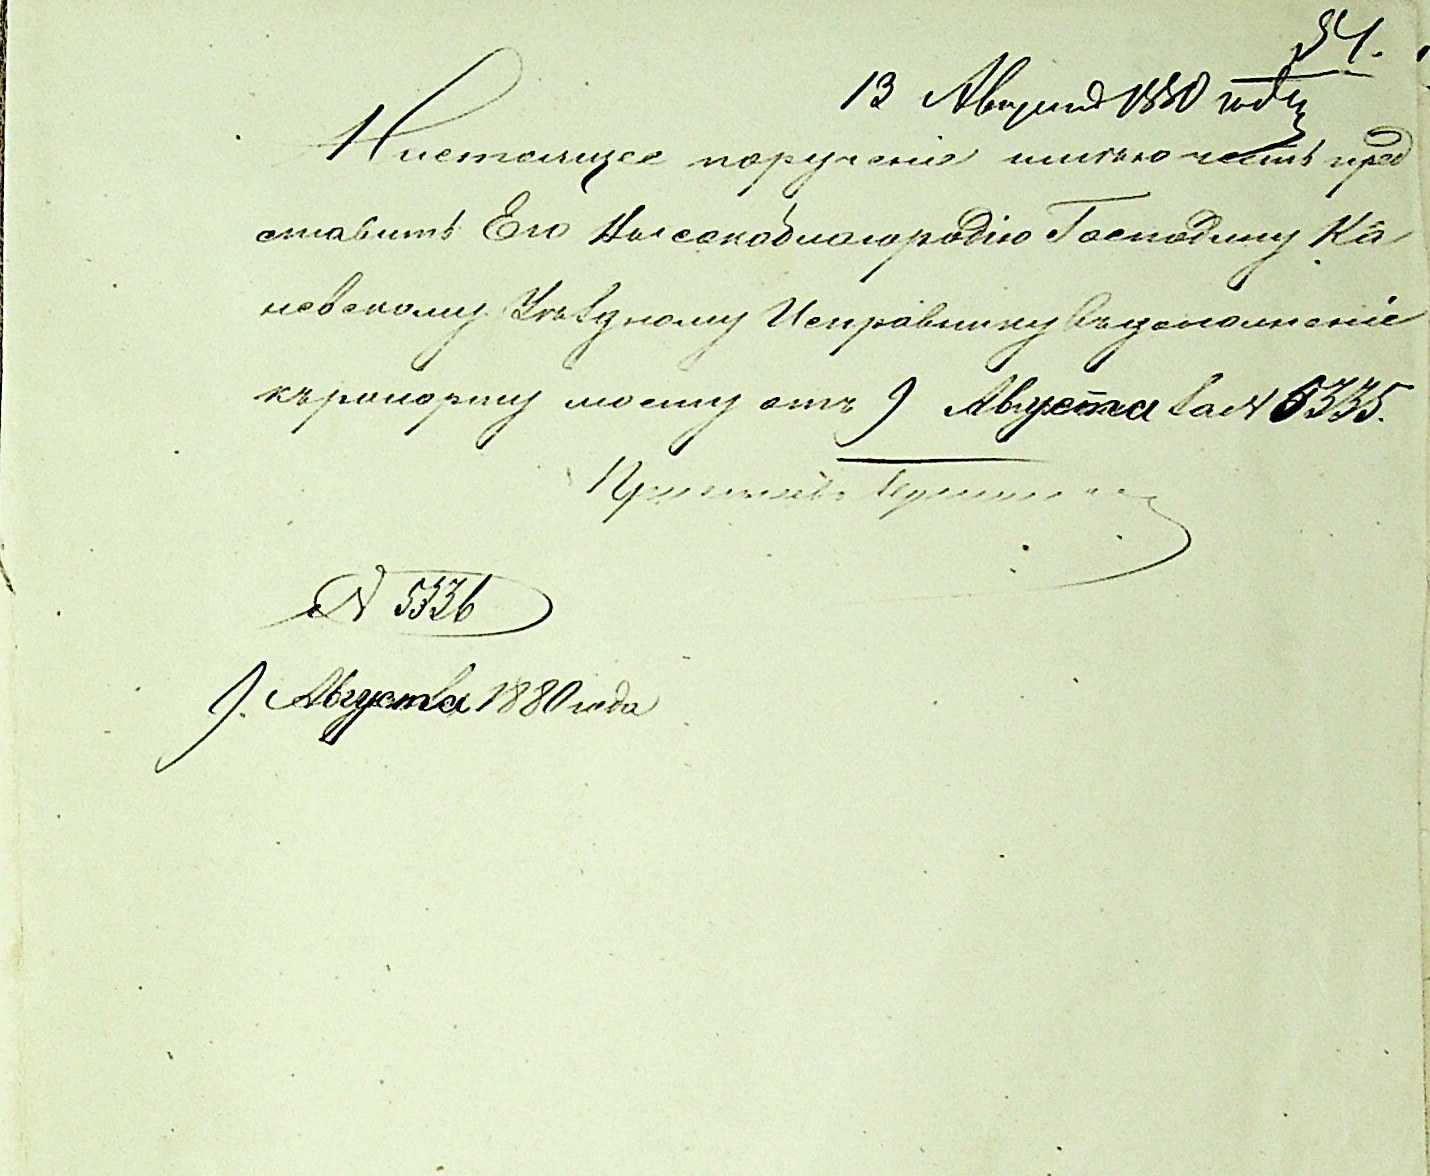 34.
13 Августа 1880 года
Настоящее порученіе имѣю честь пред
ставить Его Высокоблагородію Господину Ка
невскому Уѣздному Исправнику въ дополненіе
къ рапорту моему отъ 9 Августа за № 5335.
Приставъ
№ 5336
9. Августа 1880 года